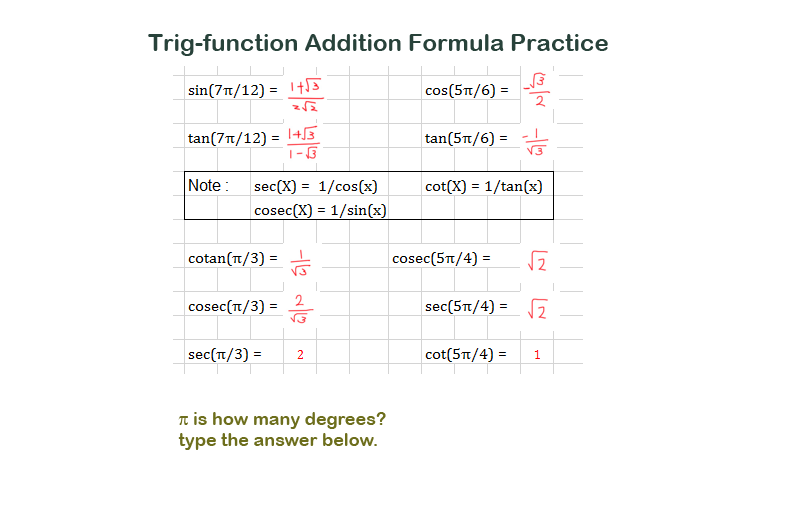 Trig-function Addition Formula Practice
sin(7π/12) = (1+√3)/(2√2) cos(5π/6) = -√3/2
tan(7π/12) = (1+√3)/(1-√3) tan(5π/6) = -1/√3
Note : sec(X) = 1/cos(x) cot(X) = 1/tan(x)
cosec(X) = 1/sin(x)
cotan(π/3) = 1/√3 cosec(5π/4) = √2
cosec(π/3) = 2/√3 sec(5π/4) = √2
sec(π/3) = 2 cot(5π/4) = 1
π is how many degrees?
type the answer below.